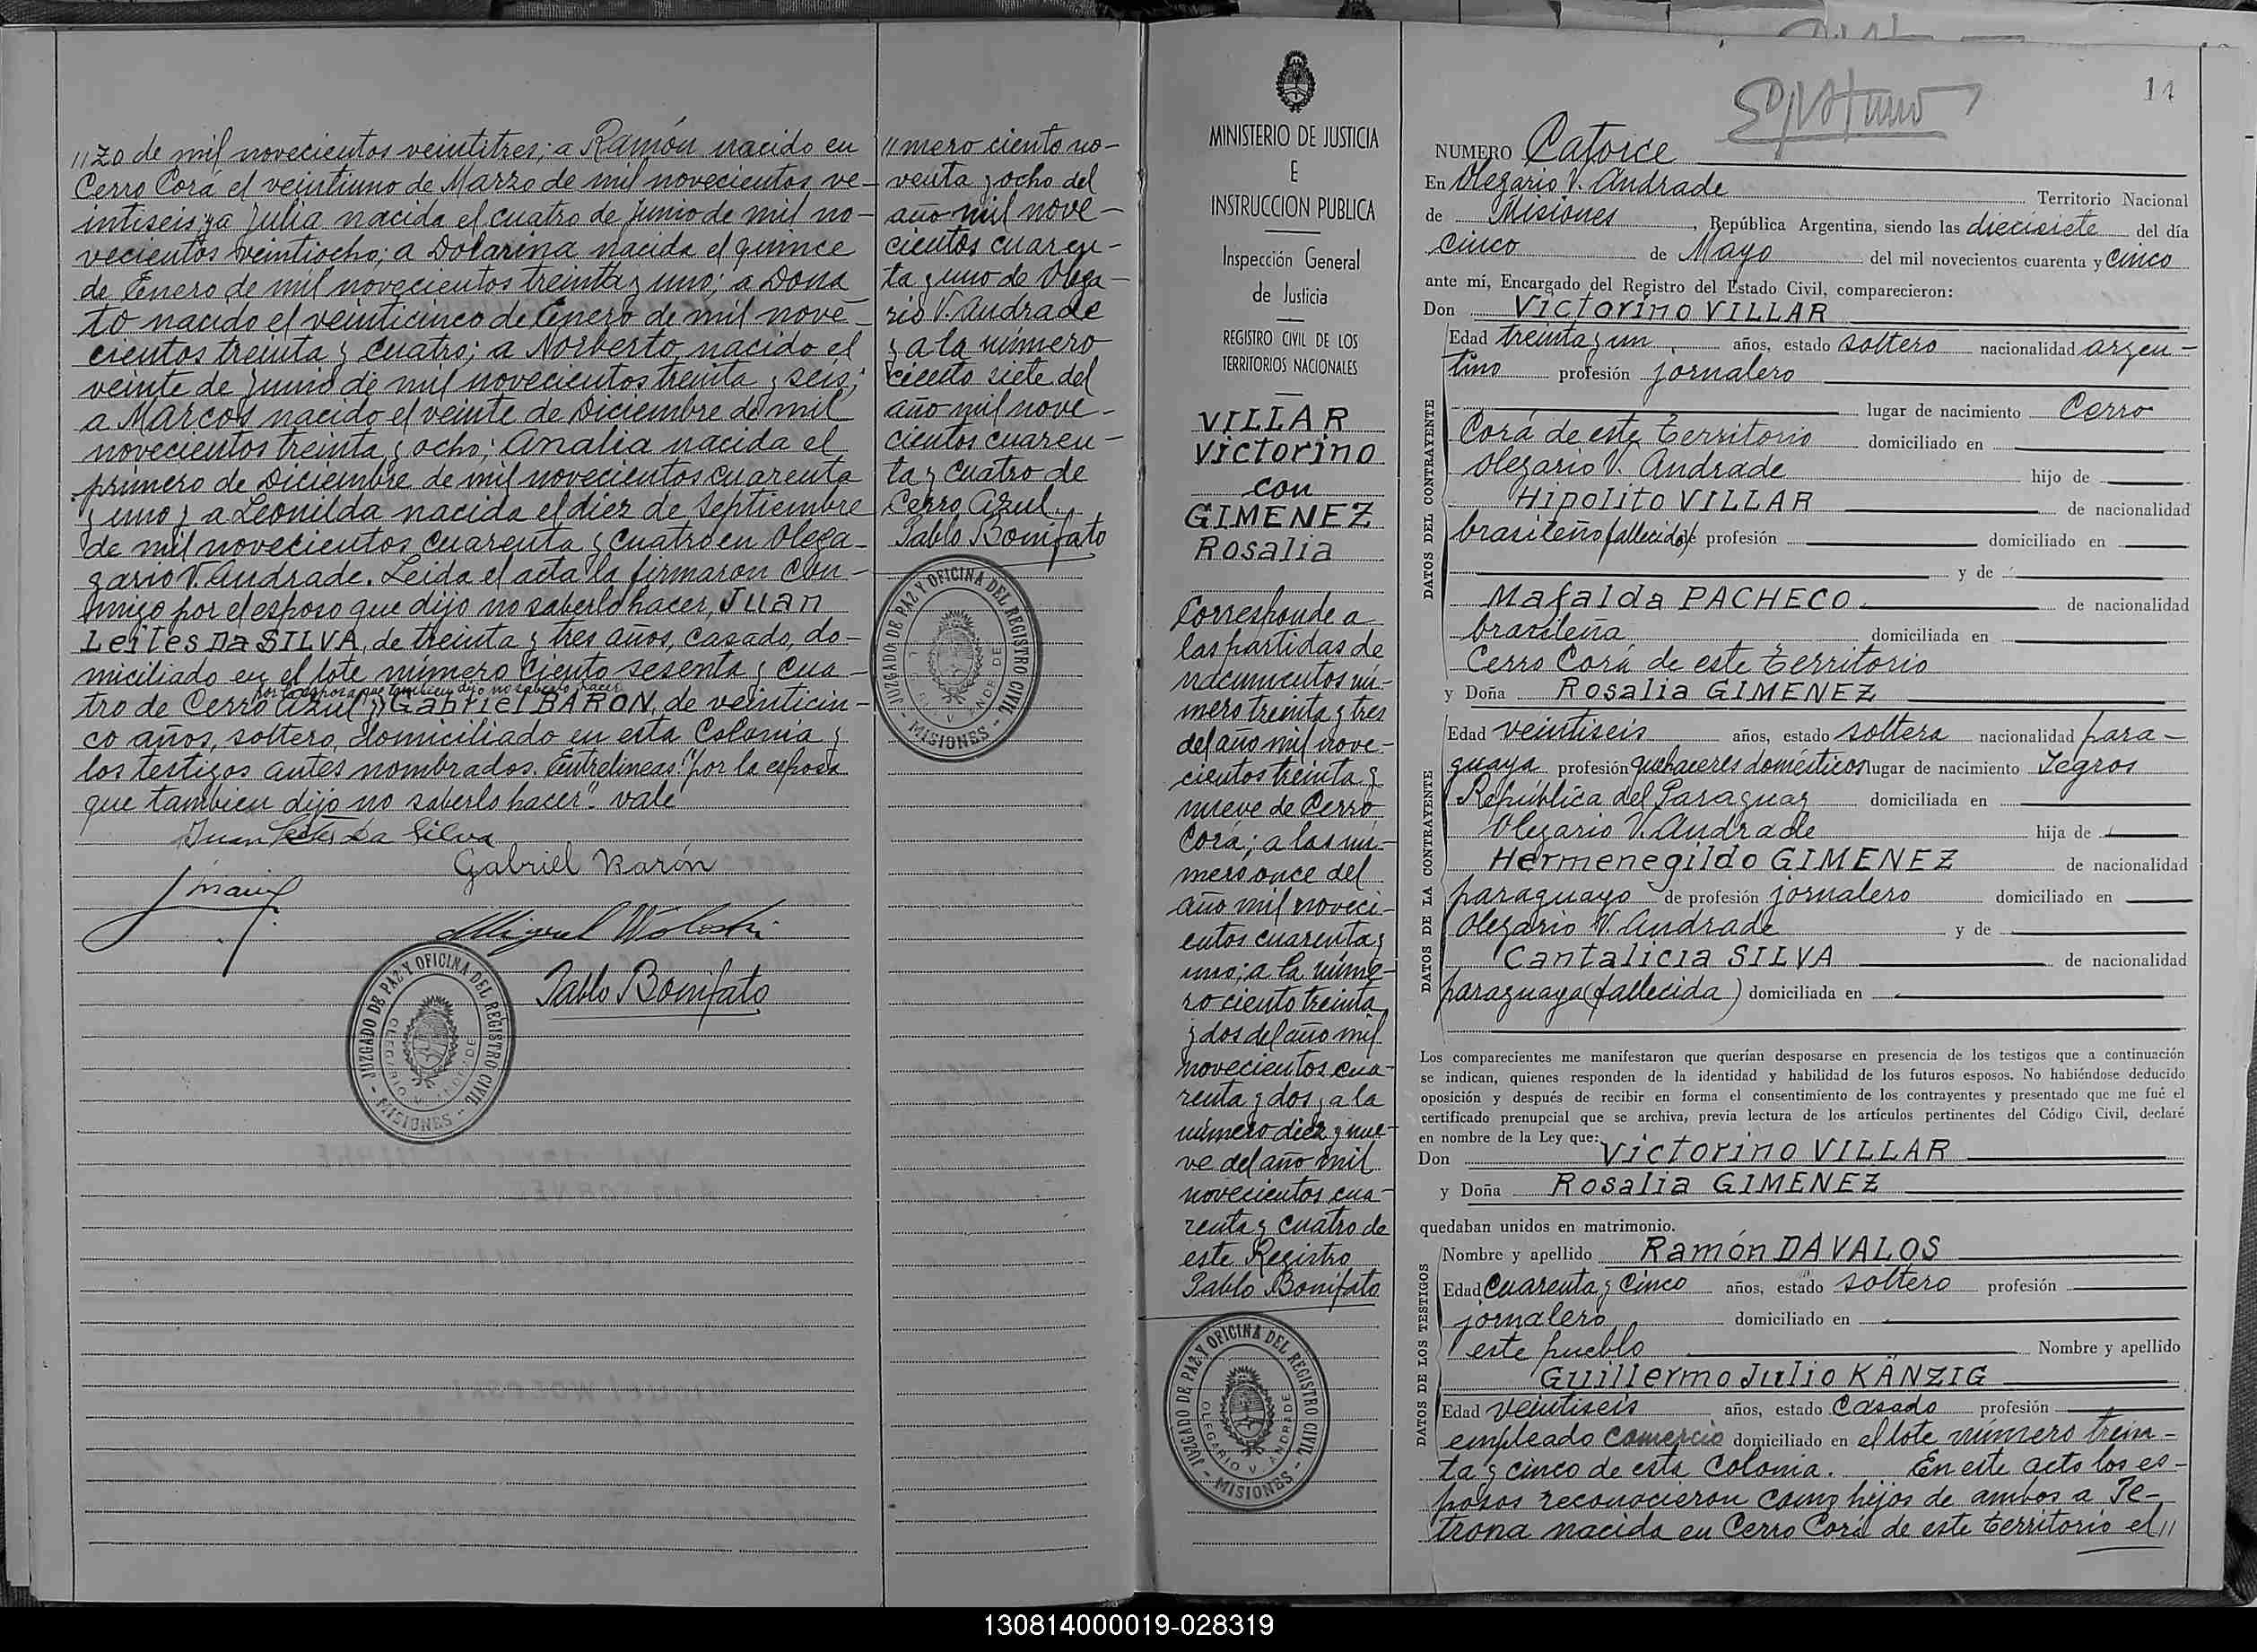 //zo de mil novecientos veintitres; a Ramón nacido en
Cerro Corá el veintiuno de Marzo de mil novecientos ve-
intiseis; ya Julia nacida el cuatro de Junio de mil no-
vecientos veintiocho; a Dolarina nacida el quince
de Enero de mil novecientos treinta y uno; a Dona
to nacido el veinticinco de Enero de mil nove-
cientos treinta y cuatro; a Norberto nacido el
veinte de Junio de mil novecientos treinta y seis;
a Marcos nacido el veinte de Diciembre de mil
novecientos treinta y ocho; Analia nacida el
primero de Diciembre de mil novecientos cuarenta
y uno y a Leonilda nacida el diez de Septiembre
de mil novecientos cuarenta y cuatro en Olega-
gario V. Andrade. Leida el acta la firmaron con-
migo por el esposo que dijo no saberlo hacer, Juan
Leites Da SILVA, de treinta y tres años, casado, do-
miciliado en el lote número ciento sesenta y cua-
por la esposa que tambien dijo no saberlo hacer
tro de Cerro Azul y Gabriel BARON, de veinticin-
co años, soltero, domiciliado en esta Colonia y
los testigos antes nombrados. Entrelineas: "por la esposa
que tambien dijo no saberlo hacer". Vale
Juan Leites Da Silva
Gabriel Barón
Miguel Woloski
Pablo Bonifato
JUZGADO DE PAZ Y OFICINA DEL REGISTRO CIVIL
OLEGARIO V. ANDRADE
- MISIONES -
//mero ciento no-
venta y ocho del
año mil nove-
cientos cuaren-
ta y uno de Olega-
rio V. Andrade
y a la número
ciento siete del
año mil nove-
cientos cuaren-
ta y cuatro de
Cerro Azul.
Pablo Bonifato
JUZGADO DE PAZ Y OFICINA DEL REGISTRO CIVIL
- MISIONES -
MINISTERIO DE JUSTICIA
E
INSTRUCCION PUBLICA
Inspección General
de Justicia
REGISTRO CIVIL DE LOS
TERRITORIOS NACIONALES
VILLAR
Victorino
con
GIMENEZ
Rosalia
Corresponde a
las partidas de
nacimientos nú-
mero treinta y tres
del año mil nove-
cientos treinta y
nueve de Cerro
Corá; a las nú-
mero once del
año mil noveci-
entos cuarenta y
uno; a la núme-
ro ciento treinta
y dos del año mil
novecientos cua-
renta y dos y a la
número diez y nue-
ve del año mil
novecientos cua-
renta y cuatro de
este Registro
Pablo Bonifato
JUZGADO DE PAZ Y OFICINA DEL REGISTRO CIVIL
OLEGARIO V. ANDRADE
- MISIONES -
14
NUMERO Catorce
En Olegario V. Andrade Territorio Nacional
de Misiones, República Argentina, siendo las diecisiete del día
cinco de Mayo del mil novecientos cuarenta y cinco
ante mí, Encargado del Registro del Estado Civil, comparecieron:
Don Victorino VILLAR
DATOS DEL CONTRAYENTE
Edad treinta y un años, estado soltero nacionalidad argen-
tino profesión jornalero
lugar de nacimiento Cerro
Corá de este Territorio domiciliado en
Olegario V. Andrade hijo de
Hipolito VILLAR de nacionalidad
brasileño (fallecido) de profesión domiciliado en
y de
Mafalda PACHECO de nacionalidad
brasileña domiciliada en
Cerro Corá de este Territorio
y Doña Rosalia GIMENEZ
DATOS DE LA CONTRAYENTE
Edad veintiseis años, estado soltera nacionalidad para-
guaya profesión quehaceres domésticos lugar de nacimiento Yegros
República del Paraguay domiciliada en
Olegario V. Andrade hija de
Hermenegildo GIMENEZ de nacionalidad
paraguayo de profesión jornalero domiciliado en
Olegario V. Andrade y de
Cantalicia SILVA de nacionalidad
paraguaya (fallecida) domiciliada en
Los comparecientes me manifestaron que querían desposarse en presencia de los testigos que a continuación
se indican, quienes responden de la identidad y habilidad de los futuros esposos. No habiéndose deducido
oposición y después de recibir en forma el consentimiento de los contrayentes y presentado que me fué el
certificado prenupcial que se archiva, previa lectura de los artículos pertinentes del Código Civil, declaré
en nombre de la Ley que:
Don Victorino VILLAR
y Doña Rosalia GIMENEZ
quedaban unidos en matrimonio.
DATOS DE LOS TESTIGOS
Nombre y apellido Ramón DAVALOS
Edad cuarenta y cinco años, estado soltero profesión
jornalero domiciliado en
este pueblo Nombre y apellido
Guillermo Julio KÄNZIG
Edad veintiseis años, estado casado profesión
empleado comercio domiciliado en el lote número trein-
ta y cinco de esta Colonia. En este acto los es-
posos reconocieron como hijos de ambos a Pe-
trona nacida en Cerro Corá de este territorio el//
130814000019-028319